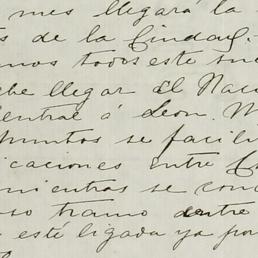 mes llegará la
s de la Ciudad.
mos todos este
be llegar el Nac
entral á Leon. M
puntos se facili
icaciones entre
mientras se con
so tramo entre
esté ligada ya por